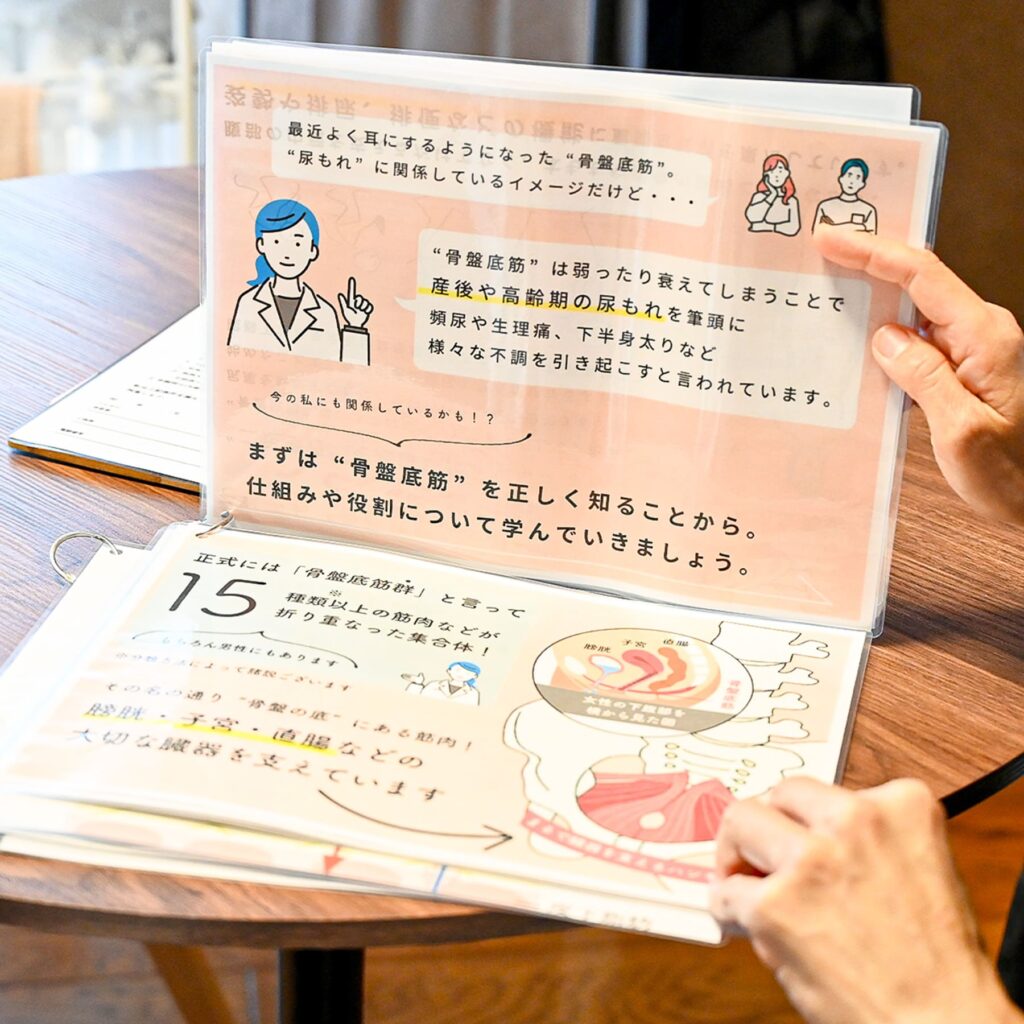 最近よく耳にするようになった“骨盤底筋”。
“尿もれ”に関係しているイメージだけど・・・
“骨盤底筋”は弱ったり衰えてしまうことで
産後や高齢期の尿もれを筆頭に
頻尿や生理痛、下半身太りなど
様々な不調を引き起こすと言われています。
今の私にも関係しているかも！？
まずは“骨盤底筋”を正しく知ることから。
仕組みや役割について学んでいきましょう。
正式には「骨盤底筋群」と言って
15
※
種類以上の筋肉などが
折り重なった集合体！
もちろん男性にもあります
によって諸説ございます
その名の通り“骨盤の底”にある筋肉！
膀胱・子宮・直腸などの
大切な臓器を支えています
膀胱
子宮
直腸
骨盤底筋
女性の下腹部を
横から見た図